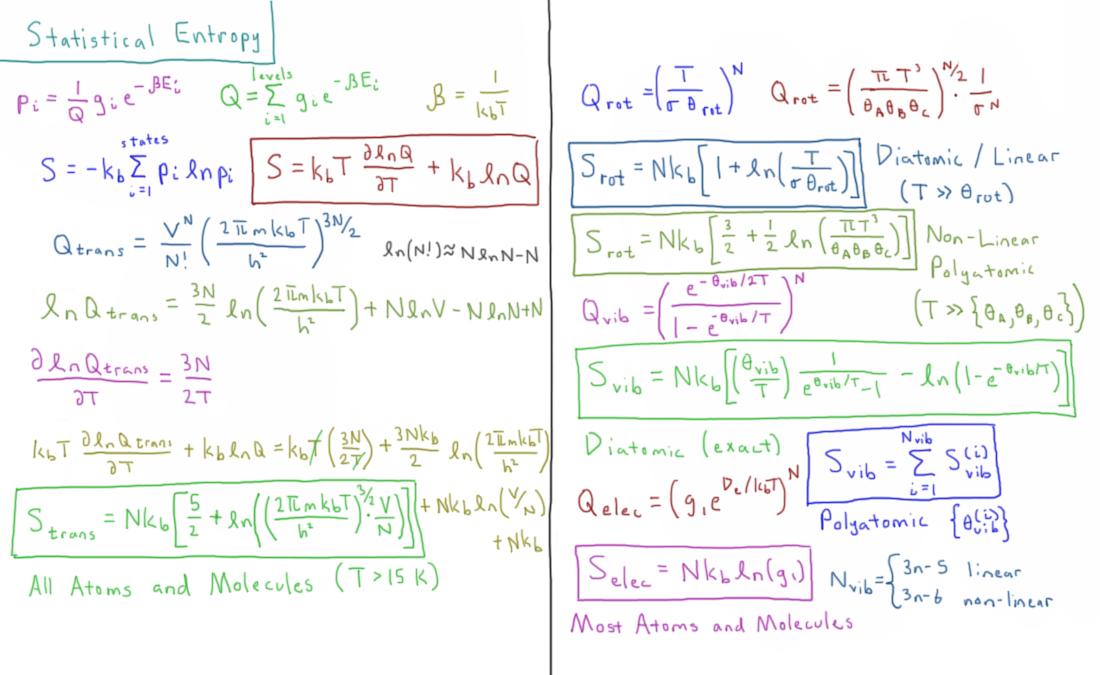 Statistical Entropy
p_i = 1/Q g_i e^{-βE_i} Q = Σ_{i=1}^{levels} g_i e^{-βE_i} β = 1/(k_bT)
S = -k_b Σ_{i=1}^{states} p_i ln p_i S = k_bT ∂lnQ/∂T + k_b lnQ
Q_trans = V^N/N! (2πmk_bT/h²)^{3N/2} ln(N!)≈NlnN-N
lnQ_trans = 3N/2 ln(2πmk_bT/h²) + NlnV - NlnN+N
∂lnQ_trans/∂T = 3N/2T
k_bT ∂lnQ_trans/∂T + k_b lnQ = k_bT(3N/2T) + 3Nk_b/2 ln(2πmk_bT/h²)
+ Nk_b ln(V/N)
+ Nk_b
S_trans = Nk_b[5/2 + ln((2πmk_bT/h²)^{3/2}·V/N)]
All Atoms and Molecules (T > 15 K)
Q_rot = (T/(σ θ_rot))^N Q_rot = (πT³/(θ_Aθ_Bθ_C))^{N/2}·1/σ^N
S_rot = Nk_b[1 + ln(T/(σ θ_rot))] Diatomic / Linear
(T ≫ θ_rot)
S_rot = Nk_b[3/2 + 1/2 ln(πT³/(θ_Aθ_Bθ_C))] Non-Linear
Polyatomic
(T ≫ {θ_A, θ_B, θ_C})
Q_vib = (e^{-θ_vib/2T}/(1 - e^{-θ_vib/T}))^N
S_vib = Nk_b[(θ_vib/T) 1/(e^{θ_vib/T}-1) - ln(1-e^{-θ_vib/T})]
Diatomic (exact)
S_vib = Σ_{i=1}^{N_vib} S_vib^{(i)}
Polyatomic {θ_vib^{(i)}}
Q_elec = (g_1 e^{D_e/k_bT})^N
S_elec = Nk_b ln(g_1)
N_vib = { 3n-5 linear
3n-6 non-linear
Most Atoms and Molecules